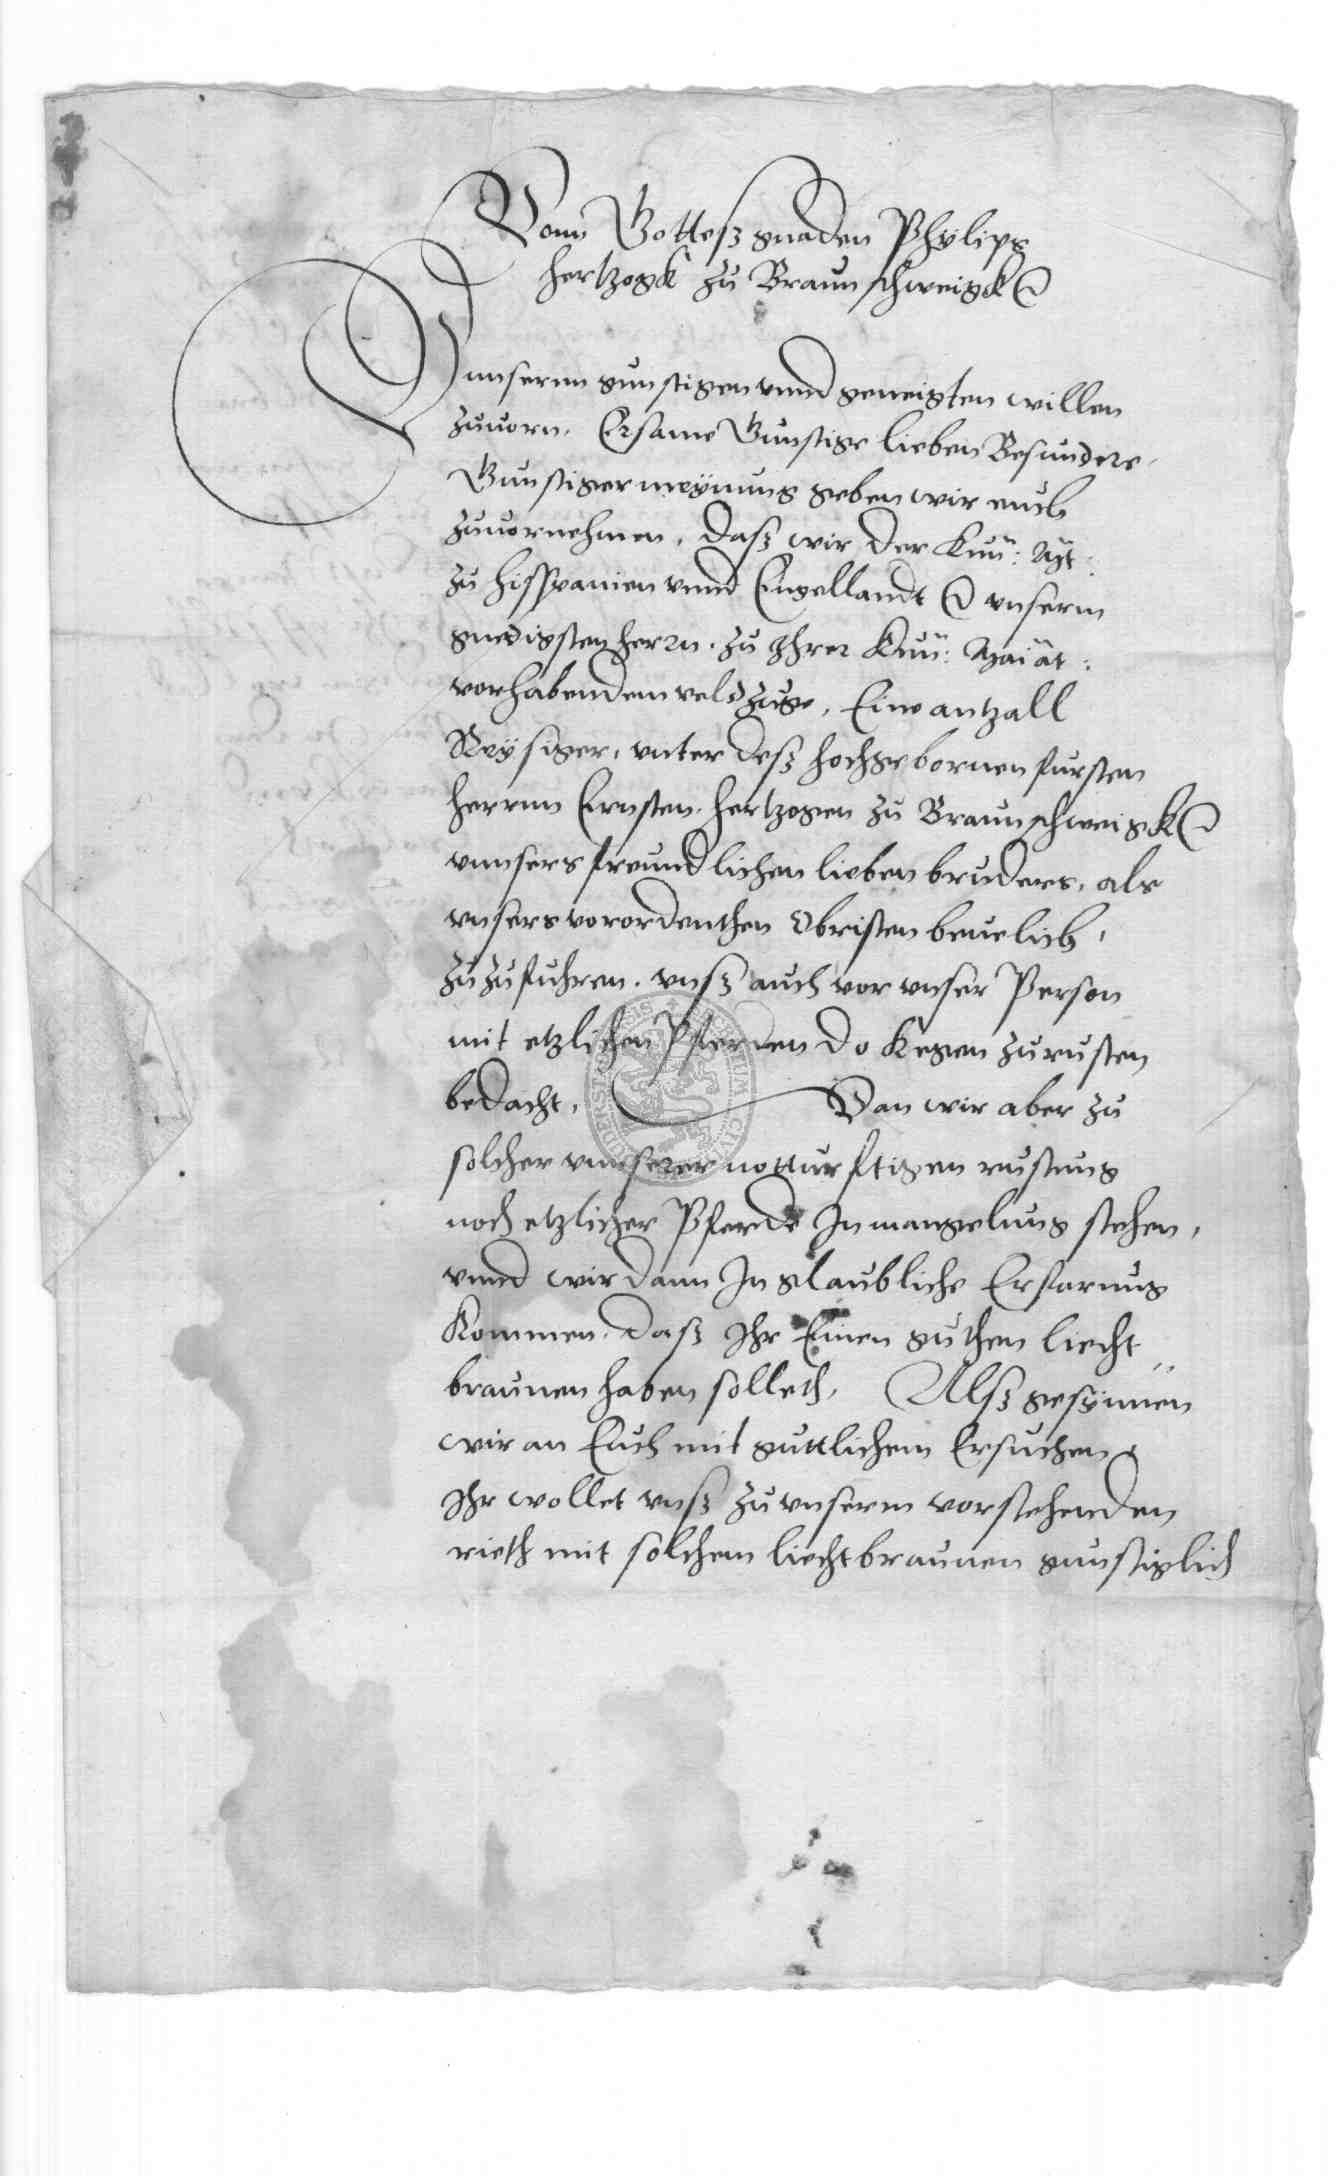 Vonn Gotteß gnaden Phylips
hertzogk zu Braunschweigk ꝛc
Vnnsernn gunstigen vnnd geneigten willen
zuuorn. Ersame Gunstige lieben Besundere,
Gunstiger meÿnung geben wir euch
zuuornehmen, daß wir der Kuñ: Mt:
zu hisspanien vnnd Engellandt ꝛc vnserm
gnedigsten herrn. zu Ihrer Kuñ: Maiät:
vorhabendem veldzuge, Eine antzall
Reÿsiger, vnter deß hochgebornen fursten
herrnn Ernsten. hertzogen zu Braunschweigk ꝛc
vnnsers freundlichen lieben bruders, als
vnsers vorordenthen Obristen beuelich,
zuzufuhren. vnß auch vor vnser Person
mit etzlichen Pferden do kegen zu rusten
bedacht, Dan wir aber zu
solcher vnnserer notturftigen rustung
noch etzlicher Pferde In mangelung stehen,
vnnd wir dann In glaubliche Erfarung
kommen, daß Ihr Einen guthen liecht
braunen haben solleth, Alß gesÿnnen
wir an Euch mit guttlichem Ersuchen,
Ihr wollet vnß zu vnserm vorstehenden
rieth mit solchem liechtbraunen gunstiglich
CIVITATIS